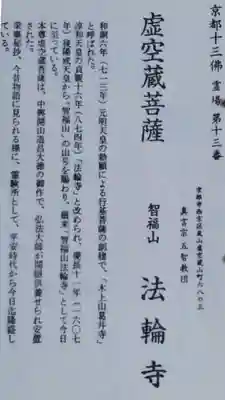 京都十三佛霊場第十三番
虚空蔵菩薩
京都市西京区嵐山虚空蔵山町六八の三
真言宗五智教団
智福山 法輪寺
和銅六年(七一三年)元明天皇の勅願による行基菩薩の創建で、「木上山葛井寺」
と呼ばれた。
淳和天皇の貞観十六年(八七四年)「法輪寺」と改められ、慶長十一年(一六〇七
年)後陽成天皇から「智福山」の山号を賜わり、爾来「智福山法輪寺」として今日
に到っている。
本尊虚空蔵菩薩は、中興開山道昌大徳の御作で、弘法大師が開眼供養せられ安置
された。
枕草秘抄、今昔物語に見られる様に、霊験所として、平安時代から今日迄隆盛し
ている。